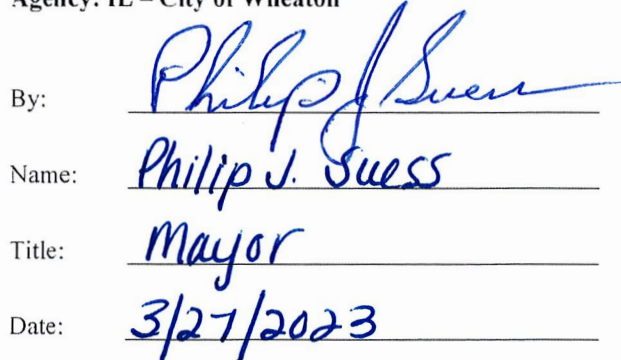 Agency: IL – City of Wheaton
By: Philip J Suess
Name: Philip J. Suess
Title: Mayor
Date: 3/27/2023